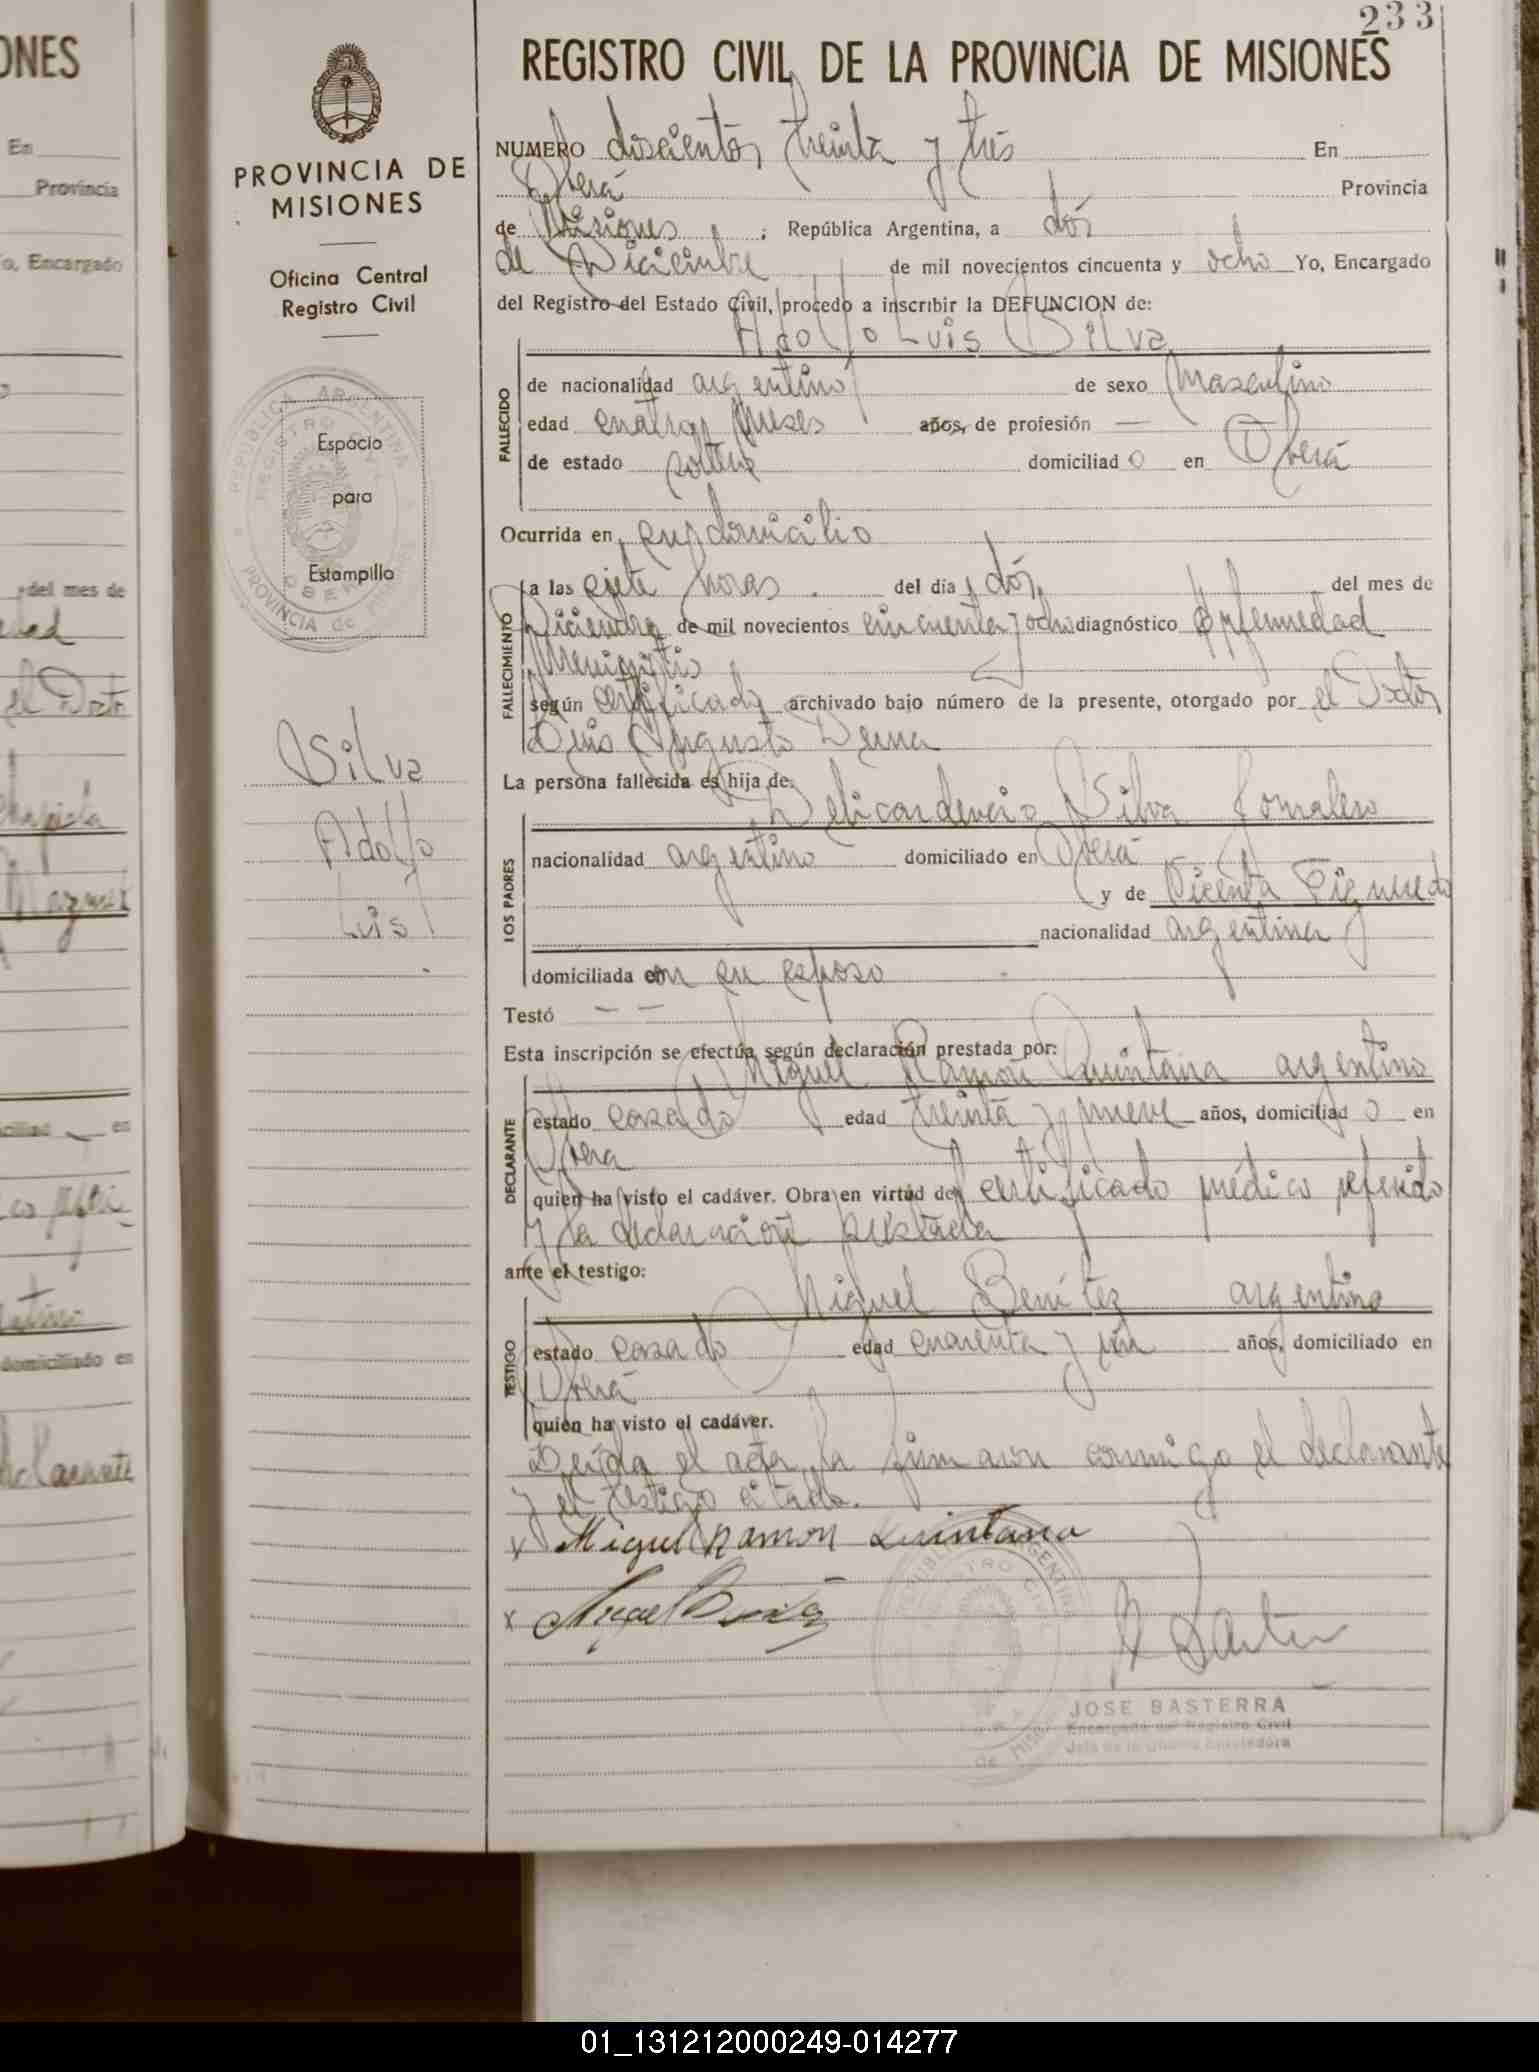 233
ONES
En
Provincia
o, Encargado
del mes de
el Doct
en
domiciliado en
declarante
PROVINCIA DE
MISIONES
Oficina Central
Registro Civil
REPUBLICA ARGENTINA
REGISTRO CIVIL
OBERA
PROVINCIA de MISIONES
Espacio
para
Estampilla
Silva
Adolfo
Luis
REGISTRO CIVIL DE LA PROVINCIA DE MISIONES
NUMERO doscientos treinta y tres En
Oberá Provincia
de Misiones ; República Argentina, a dós
de Diciembre de mil novecientos cincuenta y ocho Yo, Encargado
del Registro del Estado Civil, procedo a inscribir la DEFUNCION de:
Adolfo Luis Silva
FALLECIDO
de nacionalidad argentino de sexo Masculino
edad cuatro meses años, de profesión —
de estado soltero domiciliado en Oberá
Ocurrida en su domicilio
FALLECIMIENTO
a las siete horas . del día dós del mes de
Diciembre de mil novecientos cincuenta y ocho diagnóstico Enfermedad
según certificado archivado bajo número de la presente, otorgado por el Doctor
Luis Augusto Derna
La persona fallecida es hija de:
LOS PADRES
Delicardencio Silva Jornalero
nacionalidad argentino domiciliado en Oberá
y de Vicenta Figueredo
nacionalidad argentina
domiciliada con su esposo
Testó — —
Esta inscripción se efectúa según declaración prestada por:
DECLARANTE
Miguel Ramón Quintana argentino
estado casado edad treinta y nueve años, domiciliado en
Obera
quien ha visto el cadáver. Obra en virtud del certificado médico referido
y la declaración prestada
ante el testigo:
TESTIGO
Miguel Benítez argentino
estado casado edad cuarenta y un años, domiciliado en
Oberá
quien ha visto el cadáver.
Leída el acta, la firmaron conmigo el declarante
y el testigo citado.
x Miguel Ramon Quintana
x Miguel Benítez
JOSE BASTERRA
Encargado del Registro Civil
Jefe de la Oficina Enroladora
01_131212000249-014277